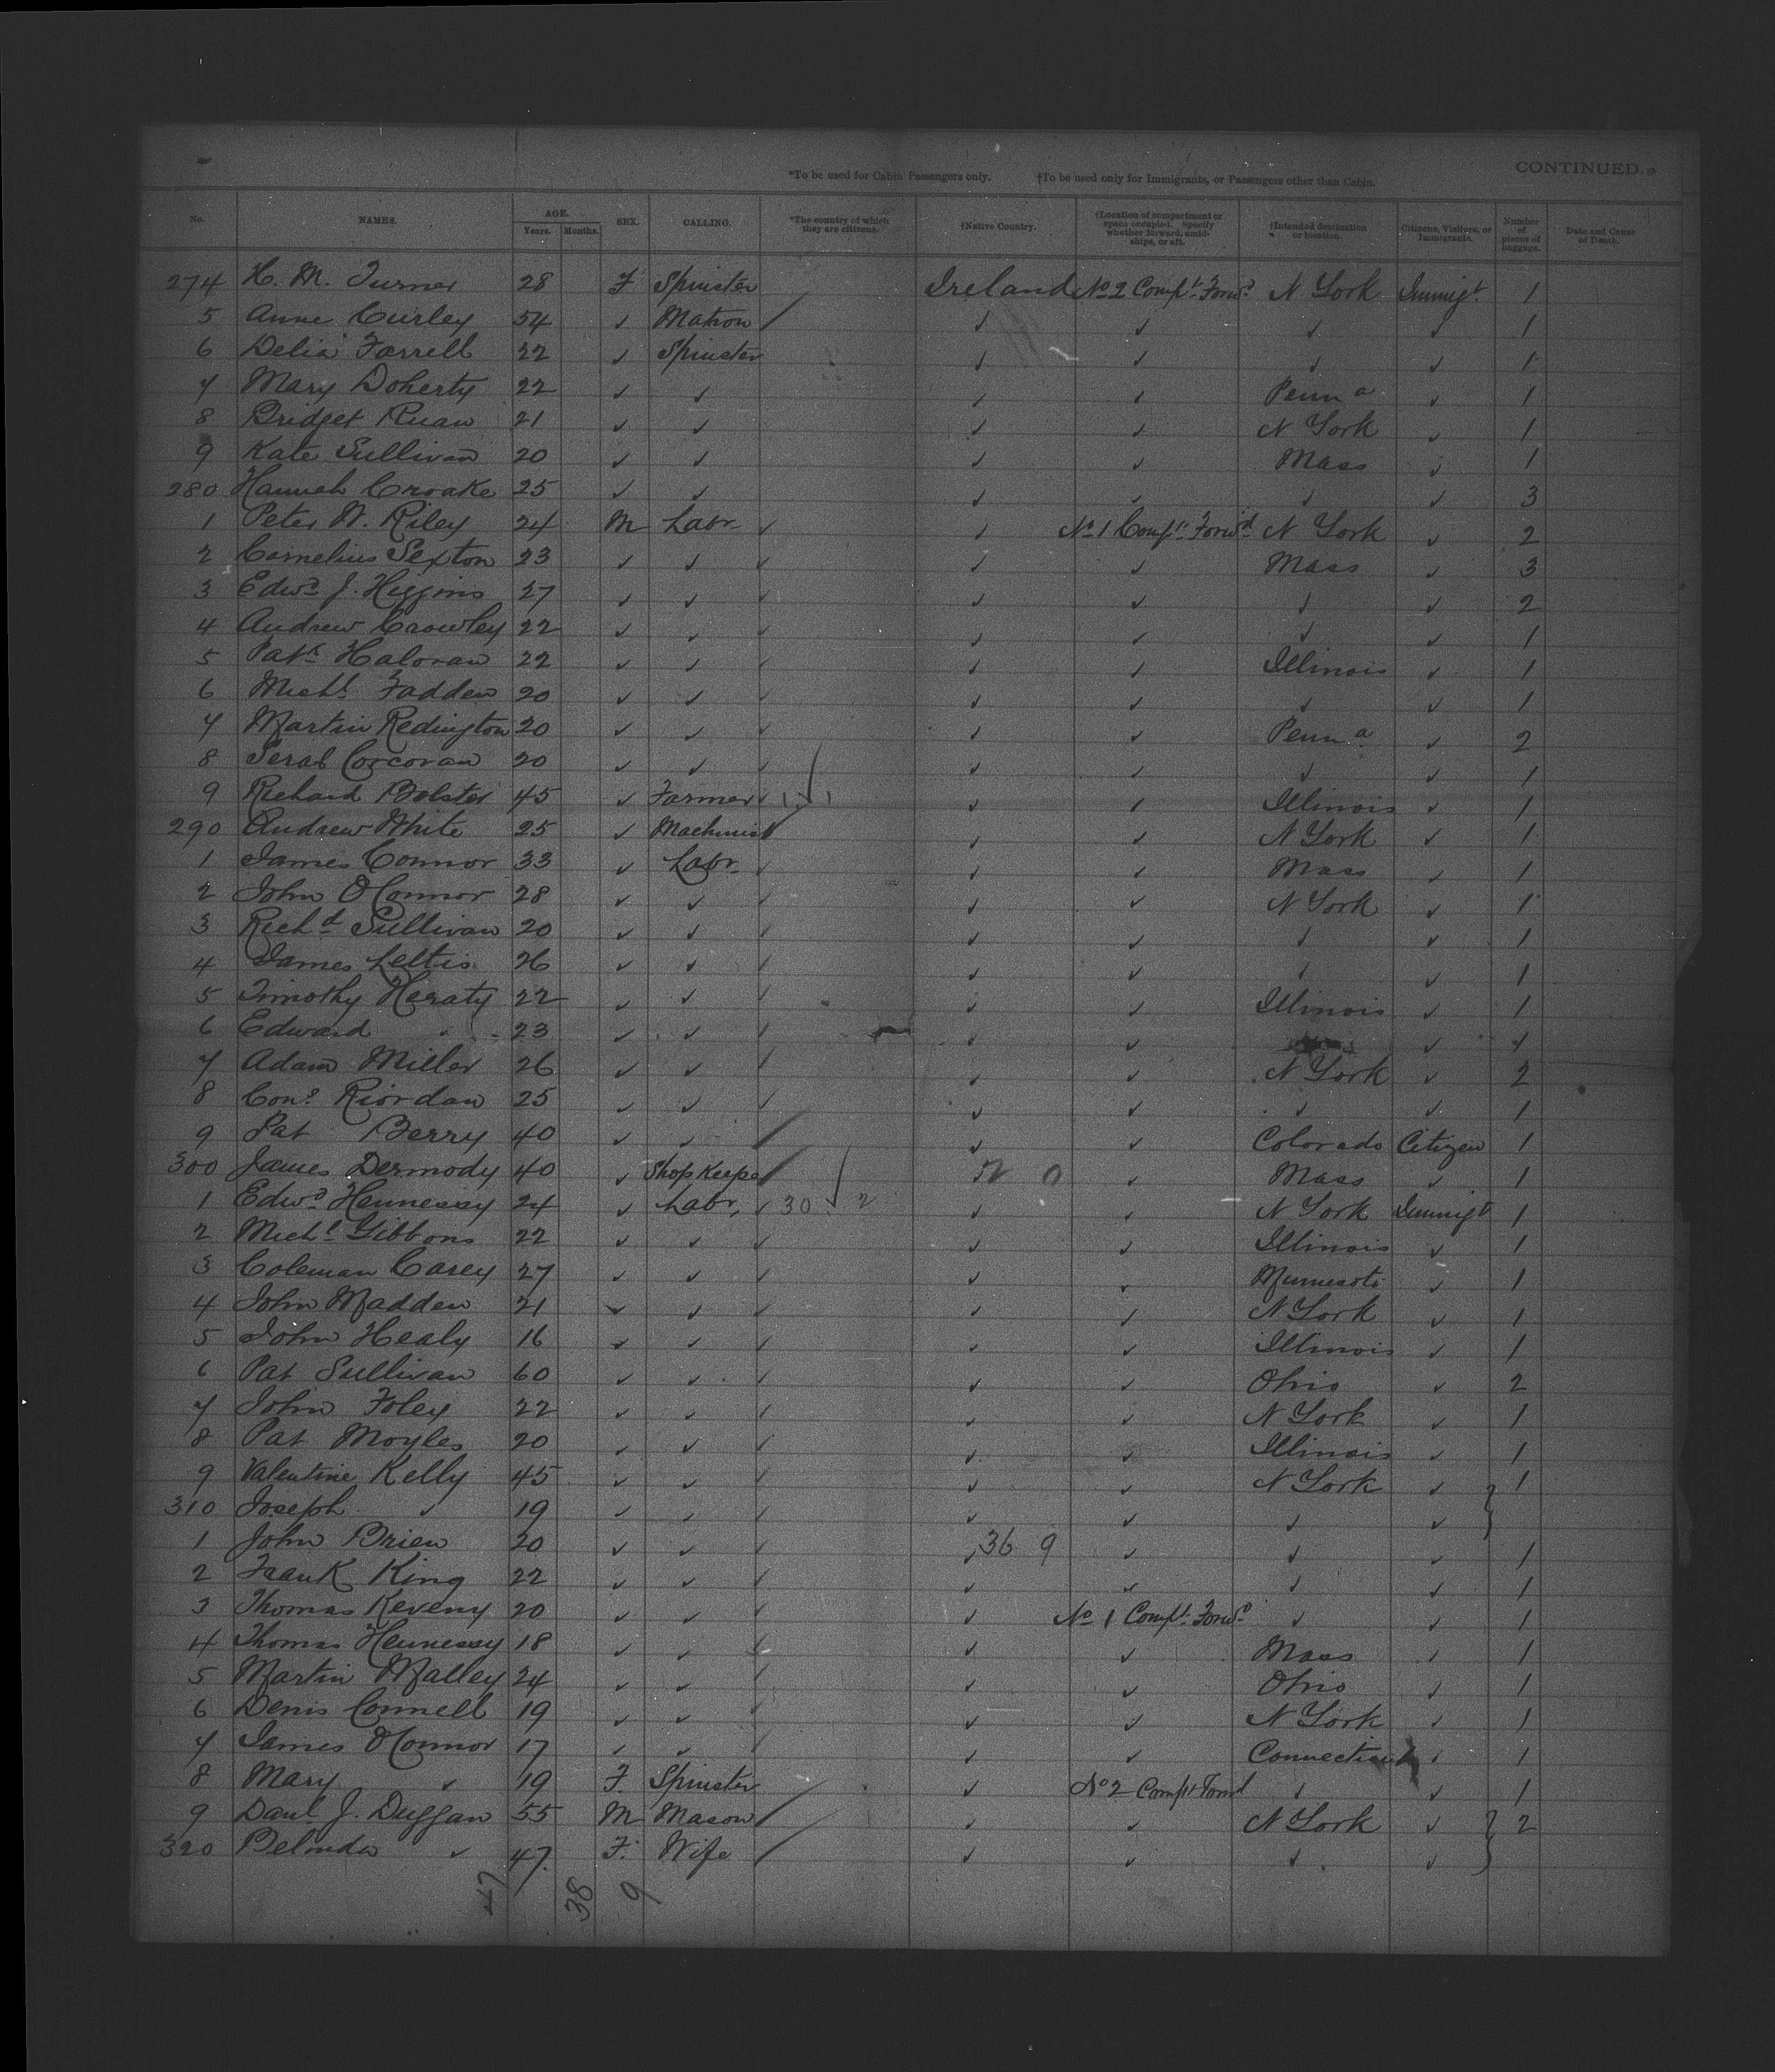 CONTINUED.
*To be used for Cabin Passengers only. †To be used only for Immigrants, or Passengers other than Cabin.
No. NAMES. AGE. Years. Months. SEX. CALLING. *The country of which they are citizens. †Native Country. †Location of compartment or space occupied. Specify whether forward, amidships, or aft. †Intended destination or location. Citizens, Visitors, or Immigrants. Number of pieces of baggage. Date and Cause of Death.
274 H. M. Turner 28 F Spinster Ireland No 2 Compt. Forwd N York Immigt. 1
5 Anne Curley 54 ✓ Matron / ✓ ✓ ✓ ✓ 1
6 Delia Farrell 22 ✓ Spinster ✓ ✓ ✓ ✓ 1
7 Mary Doherty 22 ✓ ✓ ✓ ✓ Penna ✓ 1
8 Bridget Ruan 21 ✓ ✓ ✓ ✓ N York ✓ 1
9 Kate Sullivan 20 ✓ ✓ ✓ ✓ Mass ✓ 1
280 Hannah Croake 25 ✓ ✓ ✓ ✓ ✓ ✓ 3
1 Peter W. Riley 24 M Labr ✓ ✓ No 1 Compt. Forwd N York ✓ 2
2 Cornelius Sexton 23 ✓ ✓ ✓ ✓ ✓ Mass ✓ 3
3 Edwd J. Higgins 27 ✓ ✓ ✓ ✓ ✓ ✓ ✓ 2
4 Andrew Crowley 22 ✓ ✓ ✓ ✓ ✓ ✓ ✓ 1
5 Patk Haloran 22 ✓ ✓ ✓ ✓ ✓ Illinois ✓ 1
6 Michl Fadden 20 ✓ ✓ ✓ ✓ ✓ ✓ ✓ 1
7 Martin Redington 20 ✓ ✓ ✓ ✓ ✓ Penna ✓ 2
8 Corcoran 20 ✓ ✓ ✓ ✓ ✓ ✓ ✓ 1
9 Richard Bolster 45 ✓ Farmer ✓ ✓ ✓ Illinois ✓ 1
290 Andrew White 25 ✓ Machinist / ✓ ✓ N York ✓ 1
1 James Connor 33 ✓ Labr. ✓ ✓ ✓ Mass ✓ 1
2 John O'Connor 28 ✓ ✓ ✓ ✓ ✓ N York ✓ 1
3 Richd Sullivan 20 ✓ ✓ ✓ ✓ ✓ ✓ ✓ 1
4 James Leltis 26 ✓ ✓ ✓ ✓ ✓ ✓ ✓ 1
5 Timothy Heraty 22 ✓ ✓ ✓ ✓ ✓ Illinois ✓ 1
6 Edward ✓ 23 ✓ ✓ ✓ ✓ ✓ ✓ 1
7 Adam Miller 26 ✓ ✓ ✓ ✓ ✓ N York ✓ 2
8 Cons Riordan 25 ✓ ✓ ✓ ✓ ✓ ✓ ✓ 1
9 Pat Berry 40 ✓ ✓ / ✓ ✓ Colorado Citizen 1
300 James Dermody 40 ✓ Shop Keeper / ✓ Mass ✓ 1
1 Edwd Hennessy 24 ✓ Labr. ✓ 30 ✓ 2 ✓ ✓ N York Immigt 1
2 Michl Gibbons 22 ✓ ✓ ✓ ✓ ✓ Illinois ✓ 1
3 Coleman Carey 27 ✓ ✓ ✓ ✓ ✓ Minnesota ✓ 1
4 John Madden 21 ✓ ✓ ✓ ✓ ✓ N York ✓ 1
5 John Healy 16 ✓ ✓ ✓ ✓ ✓ Illinois ✓ 1
6 Pat Sullivan 60 ✓ ✓ ✓ ✓ ✓ Ohio ✓ 2
7 John Foley 22 ✓ ✓ ✓ ✓ ✓ N York ✓ 1
8 Pat Moyles 20 ✓ ✓ ✓ ✓ ✓ Illinois ✓ 1
9 Valentine Kelly 45 ✓ ✓ ✓ ✓ ✓ N York ✓ } 1
310 Joseph ✓ 19 ✓ ✓ ✓ ✓ ✓ ✓ ✓
1 John Brien 20 ✓ ✓ ✓ ✓ 36 9 ✓ ✓ ✓ 1
2 Frank King 22 ✓ ✓ ✓ ✓ ✓ ✓ ✓ 1
3 Thomas Keveny 20 ✓ ✓ ✓ ✓ No 1 Compt. Forwd ✓ ✓ 1
4 Thomas Hennessy 18 ✓ ✓ ✓ ✓ ✓ Mass ✓ 1
5 Martin Malley 24 ✓ ✓ ✓ ✓ ✓ Ohio ✓ 1
6 Denis Connell 19 ✓ ✓ ✓ ✓ ✓ N York ✓ 1
7 James O'Connor 17 ✓ ✓ ✓ ✓ ✓ Connecticut ✓ 1
8 Mary ✓ 19 F. Spinster ✓ No 2 Compt Forwd ✓ ✓ 1
9 Danl J. Duggan 55 M Mason / ✓ ✓ N York ✓ } 2
320 Belinda ✓ 47. F. Wife / ✓ ✓ ✓ ✓
47 38 9